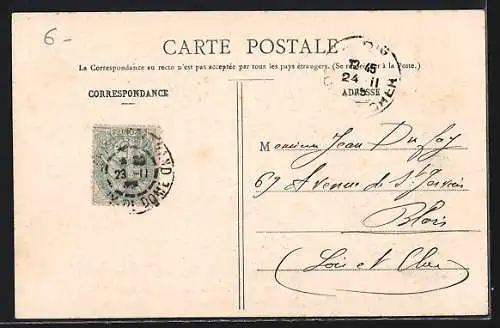 6-
CARTE POSTALE
La Correspondance au recto n'est pas acceptée par tous les pays étrangers. (Se renseigner à la Poste.)
CORRESPONDANCE
ADRESSE
12 45
24 11
CHER
23 11
DOME
Monsieur Jean Dufay
67 Avenue de St Gervais
Blois
(Loir et Cher)